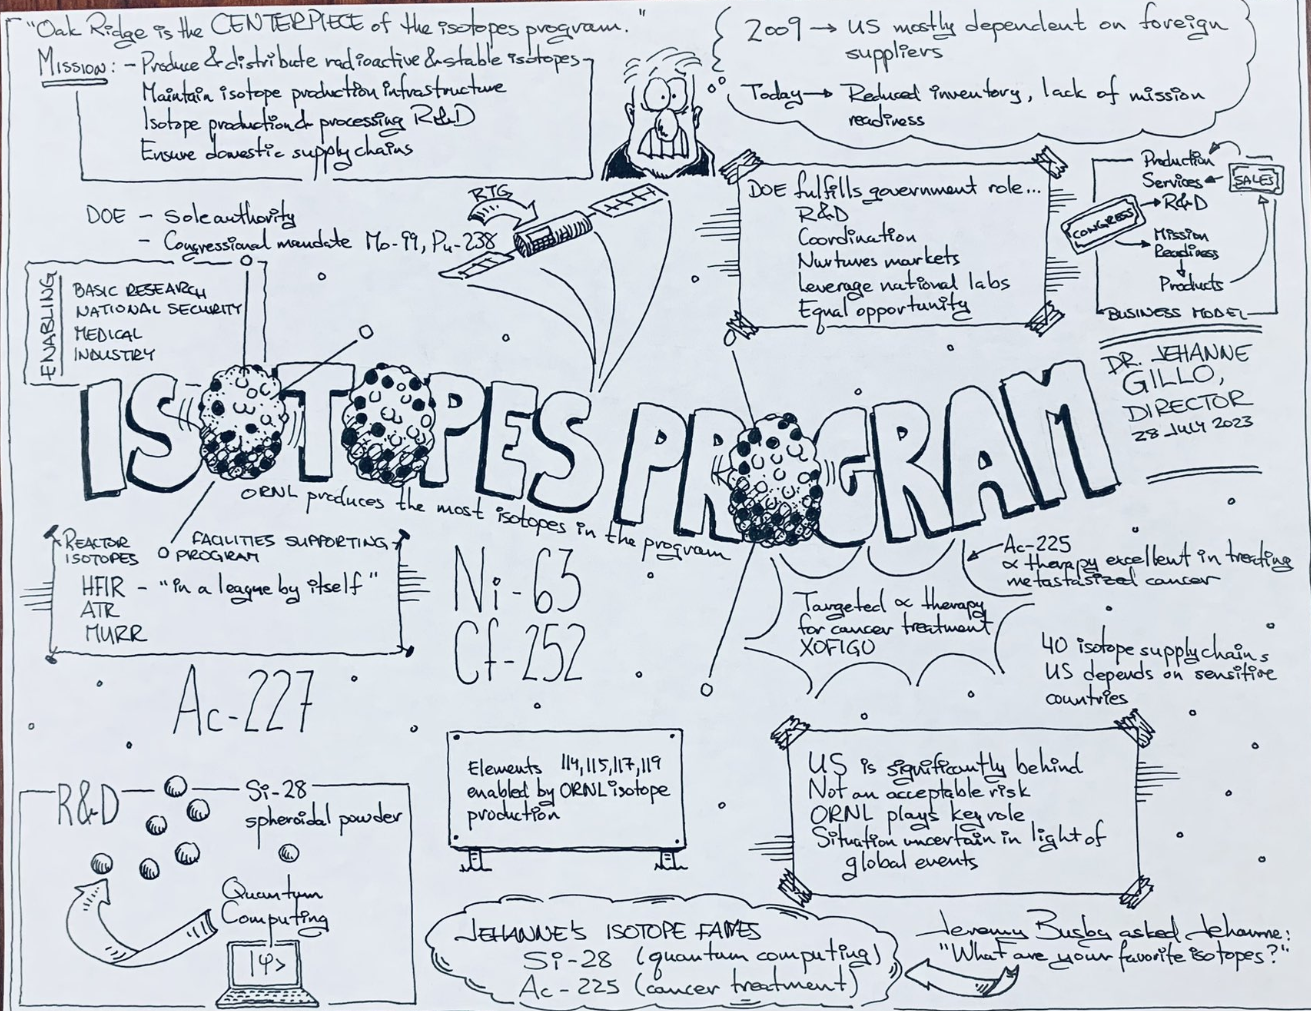 "Oak Ridge is the CENTERPIECE of the isotopes program."
Mission: - Produce & distribute radioactive & stable isotopes
Maintain isotope production infrastructure
Isotope production & processing R&D
Ensure domestic supply chains
2009 → US mostly dependent on foreign
suppliers
Today → Reduced inventory, lack of mission
readiness
DOE - Sole authority
- Congressional mandate Mo-99, Pu-238
RTG
DOE fulfills government role...
R&D
Coordination
Nurtures markets
Leverage national labs
Equal opportunity
Production
Services
SALES
R&D
CONGRESS
Mission
Readiness
Products
BUSINESS MODEL
ENABLING
BASIC RESEARCH
NATIONAL SECURITY
MEDICAL
INDUSTRY
DR. JEHANNE
GILLO,
DIRECTOR
28 JULY 2023
ISOTOPES PROGRAM
ORNL produces the most isotopes in the program
REACTOR
ISOTOPES
FACILITIES SUPPORTING
PROGRAM
HFIR - "in a league by itself"
ATR
MURR
Ni-63
Cf-252
Ac-227
Ac-225
∝ therapy excellent in treating
metastasized cancer
Targeted ∝ therapy
for cancer treatment
XOFIGO
40 isotope supply chains
US depends on sensitive
countries
R&D
Si-28
spheroidal powder
Quantum
Computing
|Ψ>
Elements 114, 115, 117, 119
enabled by ORNL isotope
production
US is significantly behind
Not an acceptable risk
ORNL plays key role
Situation uncertain in light of
global events
JEHANNE'S ISOTOPE FAVES
Si-28 (quantum computing)
Ac-225 (cancer treatment)
Jeremy Busby asked Jehanne:
"What are your favorite isotopes?"